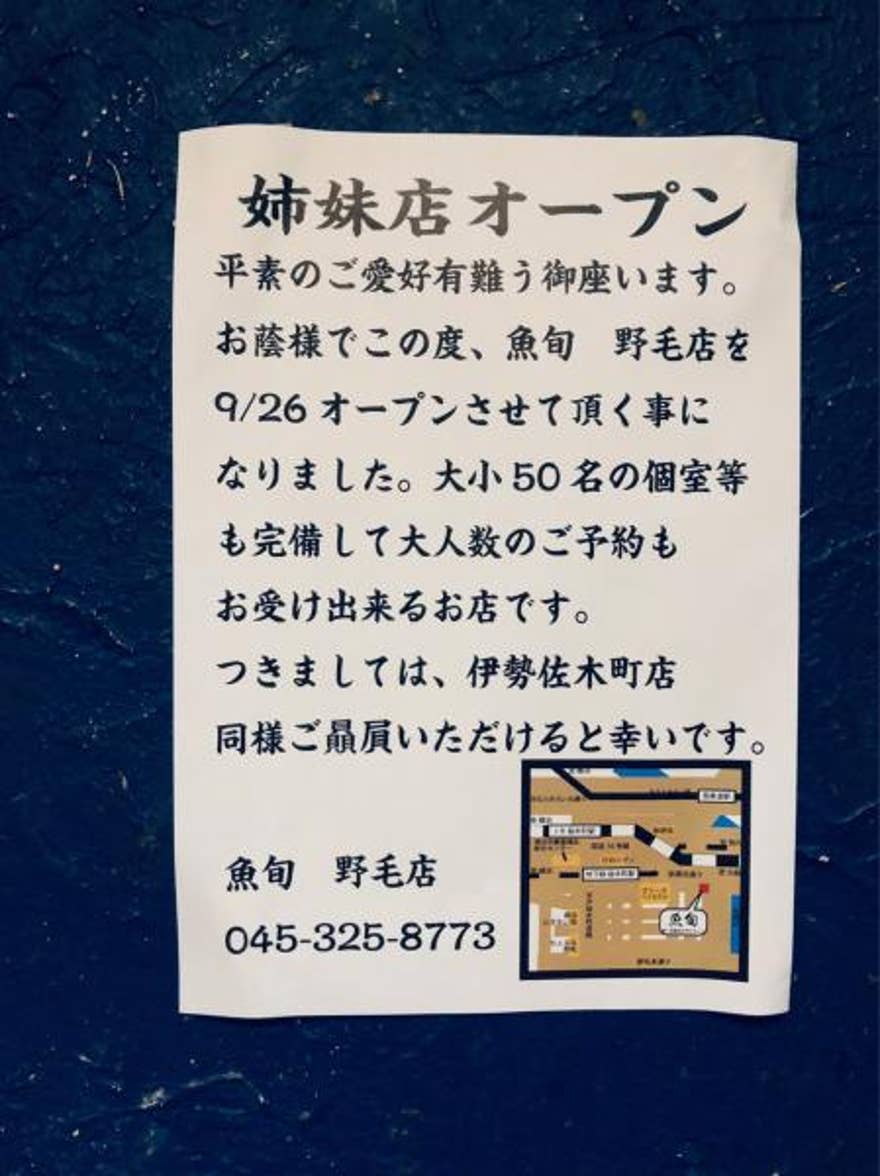 姉妹店オープン
平素のご愛好有難う御座います。
お蔭様でこの度、魚旬　野毛店を
9/26 オープンさせて頂く事に
なりました。大小 50 名の個室等
も完備して大人数のご予約も
お受け出来るお店です。
つきましては、伊勢佐木町店
同様ご贔屓いただけると幸いです。
魚旬　野毛店
045-325-8773
魚旬